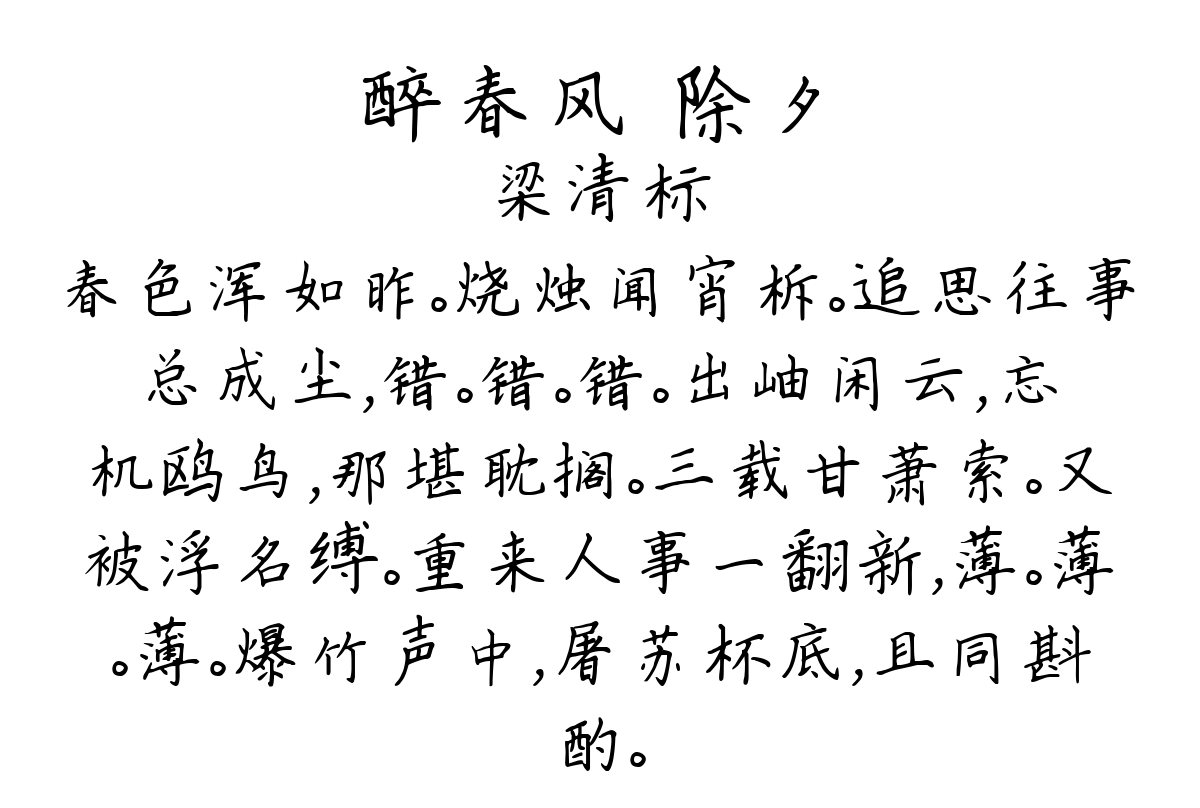 醉春风 除夕
梁清标
春色浑如昨。烧烛闻宵柝。追思往事
总成尘,错。错。错。出岫闲云,忘
机鸥鸟,那堪耽搁。三载甘萧索。又
被浮名缚。重来人事一翻新,薄。薄
。薄。爆竹声中,屠苏杯底,且同斟
酌。